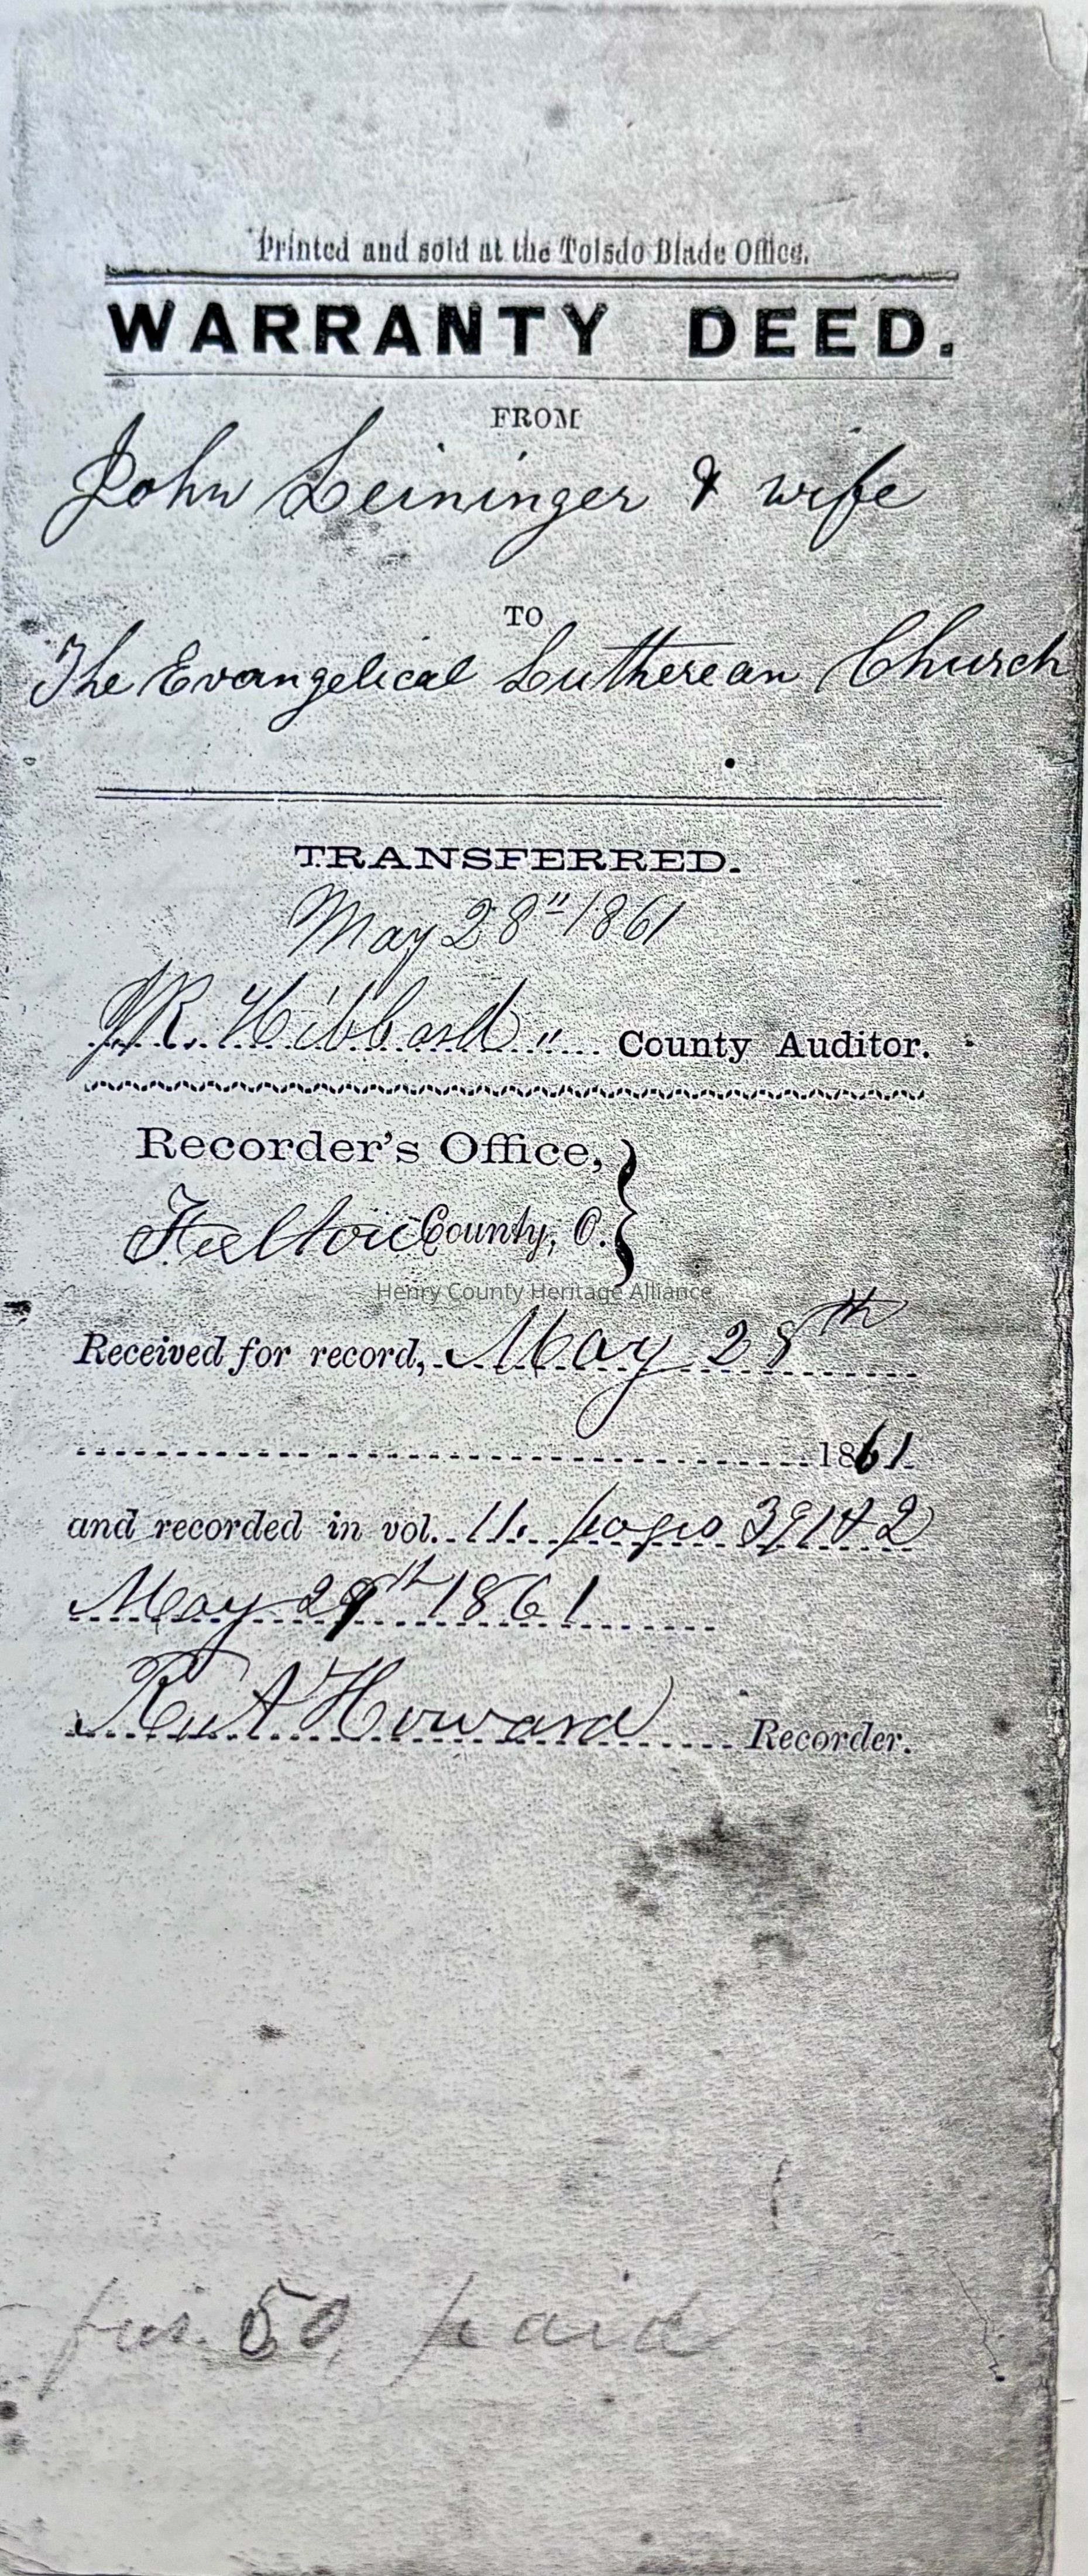 Printed and sold at the Toledo Blade Office.
WARRANTY DEED.
FROM
John Leininger & wife
TO
The Evangelical Lutherean Church
TRANSFERRED.
May 28" 1861
Hibbard " County Auditor.
Recorder's Office,
Fulton County, O.
Henry County Heritage Alliance
Received for record, May 28th
1861
and recorded in vol. 11. pages
May 29th 1861
A Howard Recorder.
fees. 50, paid